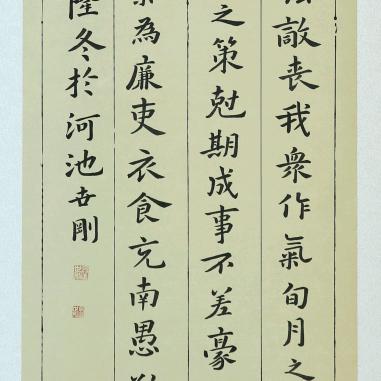 敵喪我衆作氣旬月之
之策剋期成事不差豪
為廉吏衣食充南愚
隆冬於河池世剛